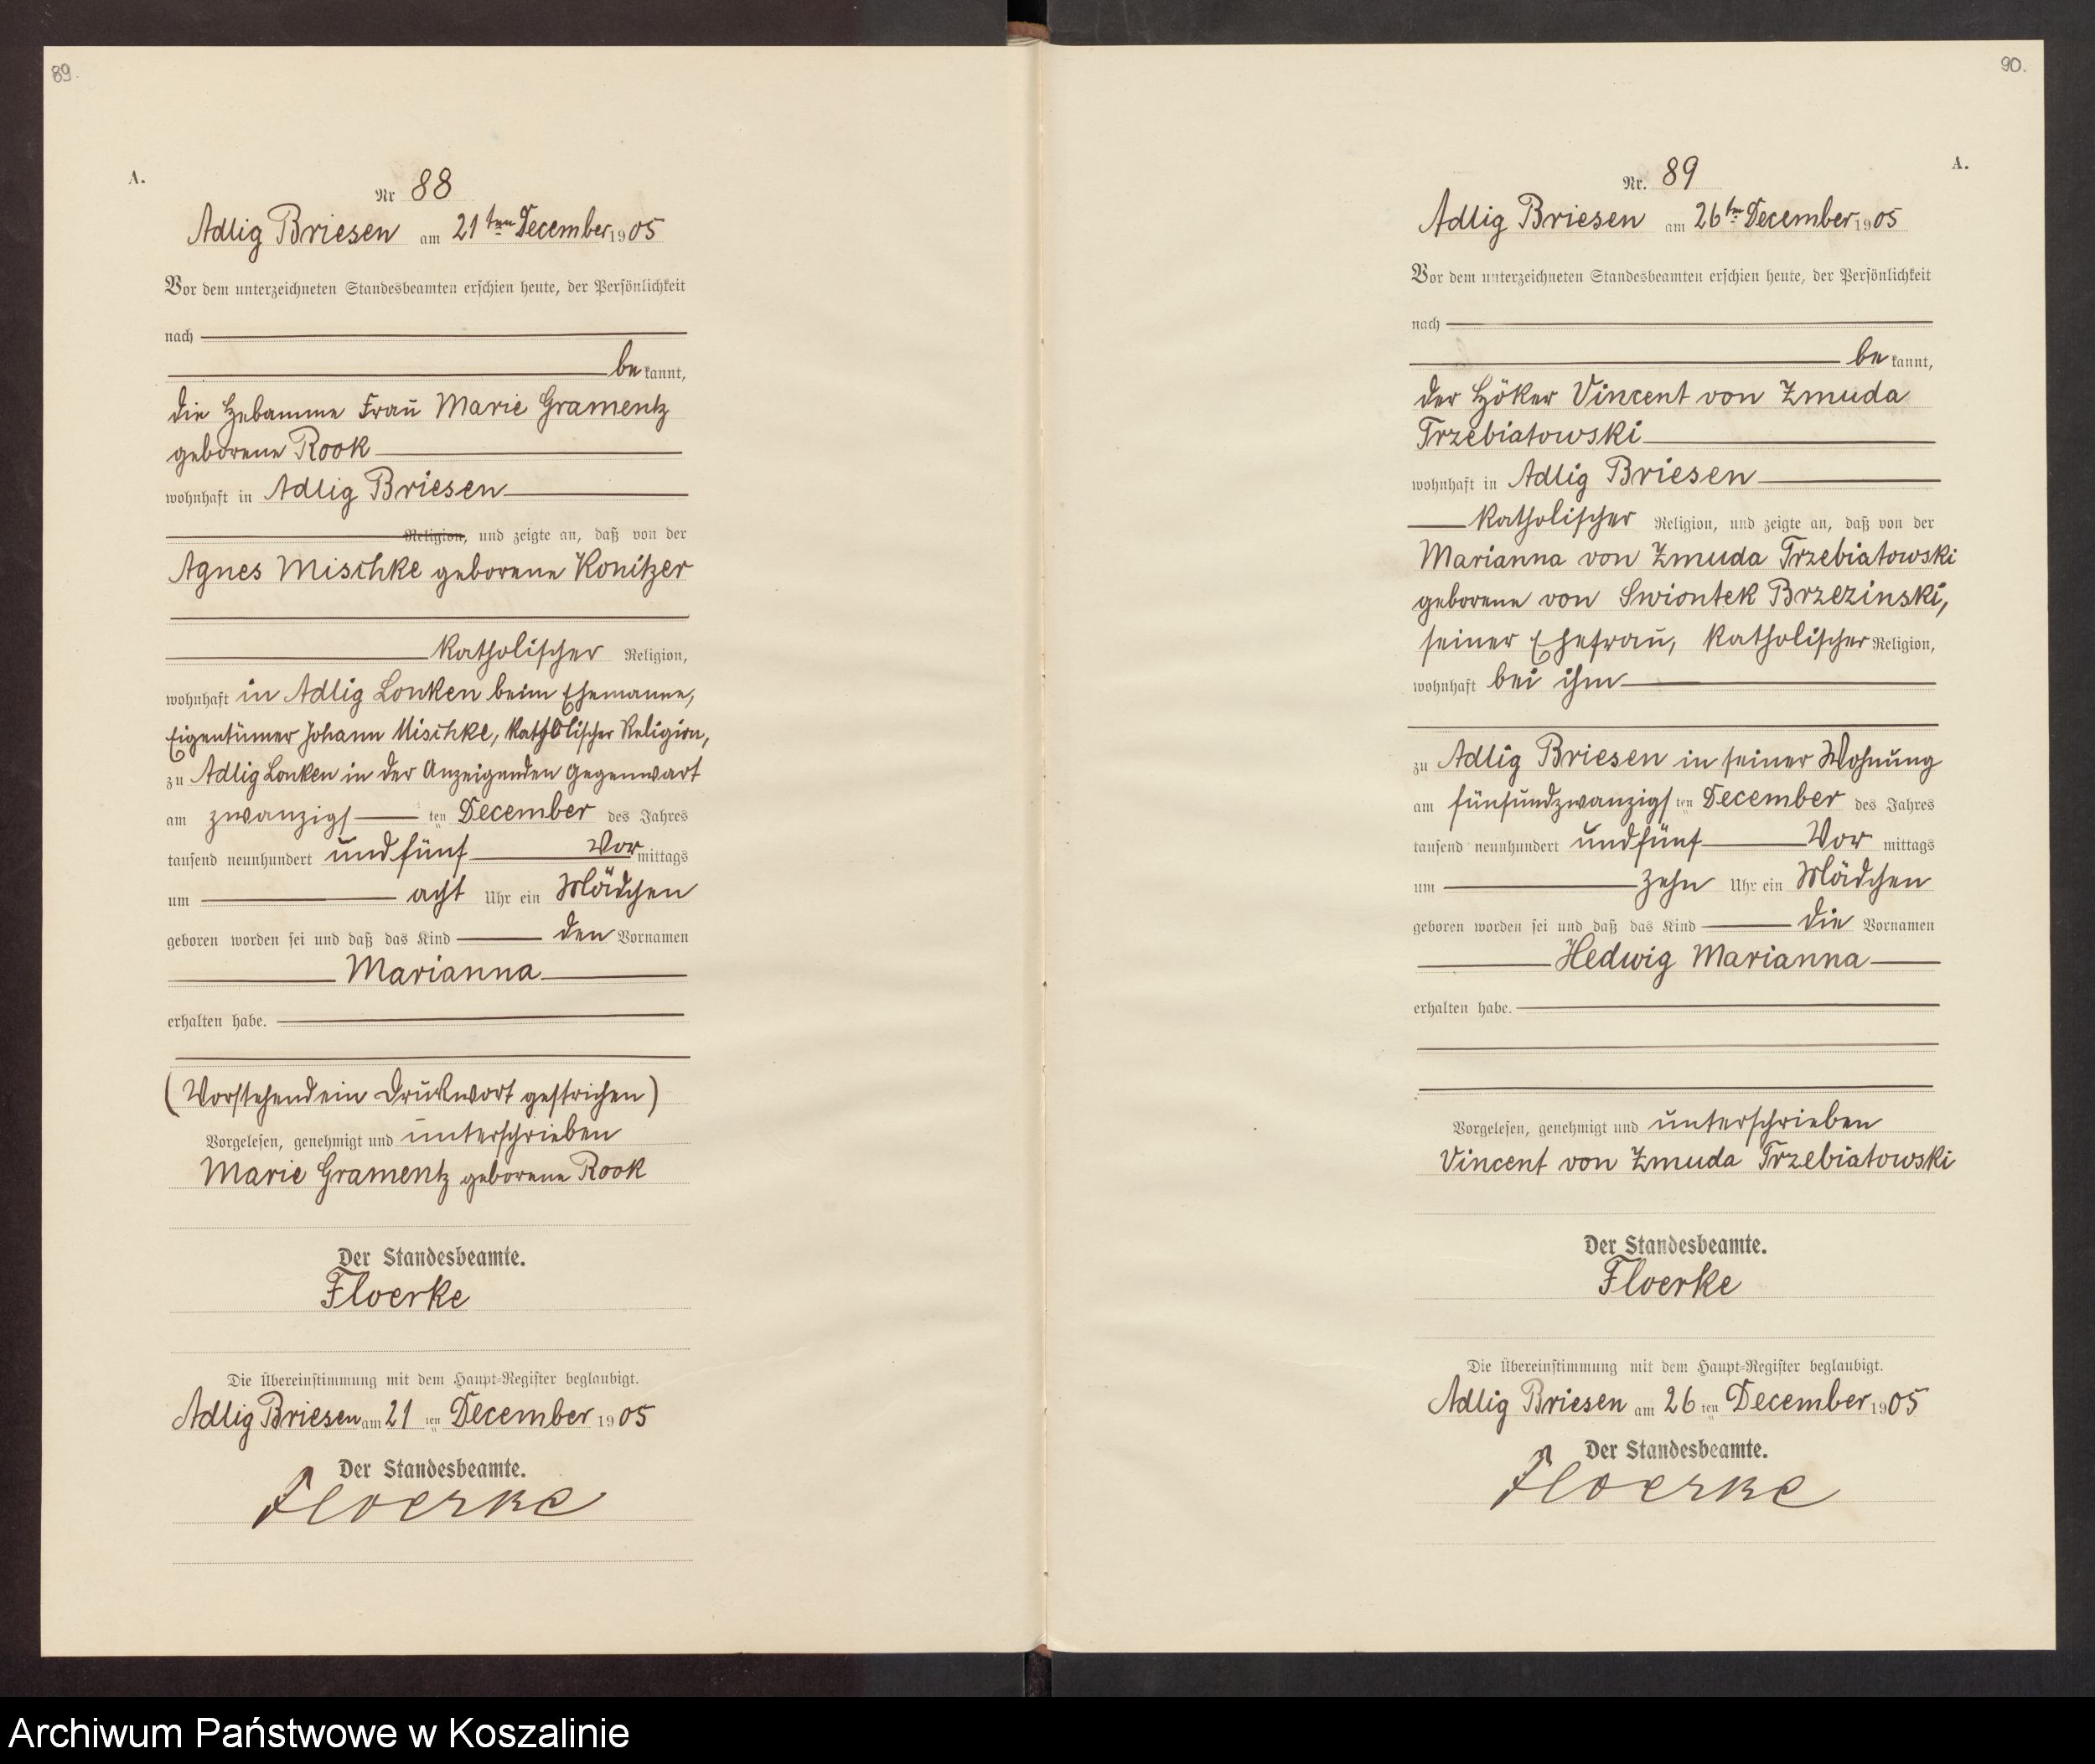 89.
A.
Nr 88
Adlig Briesen am 21ten December 1905
Vor dem unterzeichneten Standesbeamten erschien heute, der Persönlichkeit
nach
bekannt,
die Hebamme Frau Marie Gramentz
geborene Rook
wohnhaft in Adlig Briesen
Religion, und zeigte an, daß von der
Agnes Mischke geborene Konitzer
katholischer Religion,
wohnhaft in Adlig Lonken beim Ehemanne,
Eigentümer Johann Mischke, katholischer Religion,
zu Adlig Lonken in der Anzeigenden Gegenwart
am zwanzigsten December des Jahres
tausend neunhundert und fünf Vormittags
um acht Uhr ein Mädchen
geboren worden sei und daß das Kind den Vornamen
Marianna
erhalten habe.
(Vorstehend ein Druckwort gestrichen)
Vorgelesen, genehmigt und unterschrieben
Marie Gramentz geborene Rook
Der Standesbeamte.
Floerke
Die Übereinstimmung mit dem Haupt-Register beglaubigt.
Adlig Briesen am 21 ten December 1905
Der Standesbeamte.
Floerke
90.
A.
Nr. 89
Adlig Briesen am 26ten December 1905
Vor dem unterzeichneten Standesbeamten erschien heute, der Persönlichkeit
nach
bekannt,
der Höker Vincent von Zmuda
Trzebiatowski
wohnhaft in Adlig Briesen
katholischer Religion, und zeigte an, daß von der
Marianna von Zmuda Trzebiatowski
geborene von Swiontek Brzezinski,
seiner Ehefrau, katholischer Religion,
wohnhaft bei ihm
zu Adlig Briesen in seiner Wohnung
am fünfundzwanzigsten December des Jahres
tausend neunhundert und fünf Vormittags
um zehn Uhr ein Mädchen
geboren worden sei und daß das Kind die Vornamen
Hedwig Marianna
erhalten habe.
Vorgelesen, genehmigt und unterschrieben
Vincent von Zmuda Trzebiatowski
Der Standesbeamte.
Floerke
Die Übereinstimmung mit dem Haupt-Register beglaubigt.
Adlig Briesen am 26 ten December 1905
Der Standesbeamte.
Floerke
Archiwum Państwowe w Koszalinie